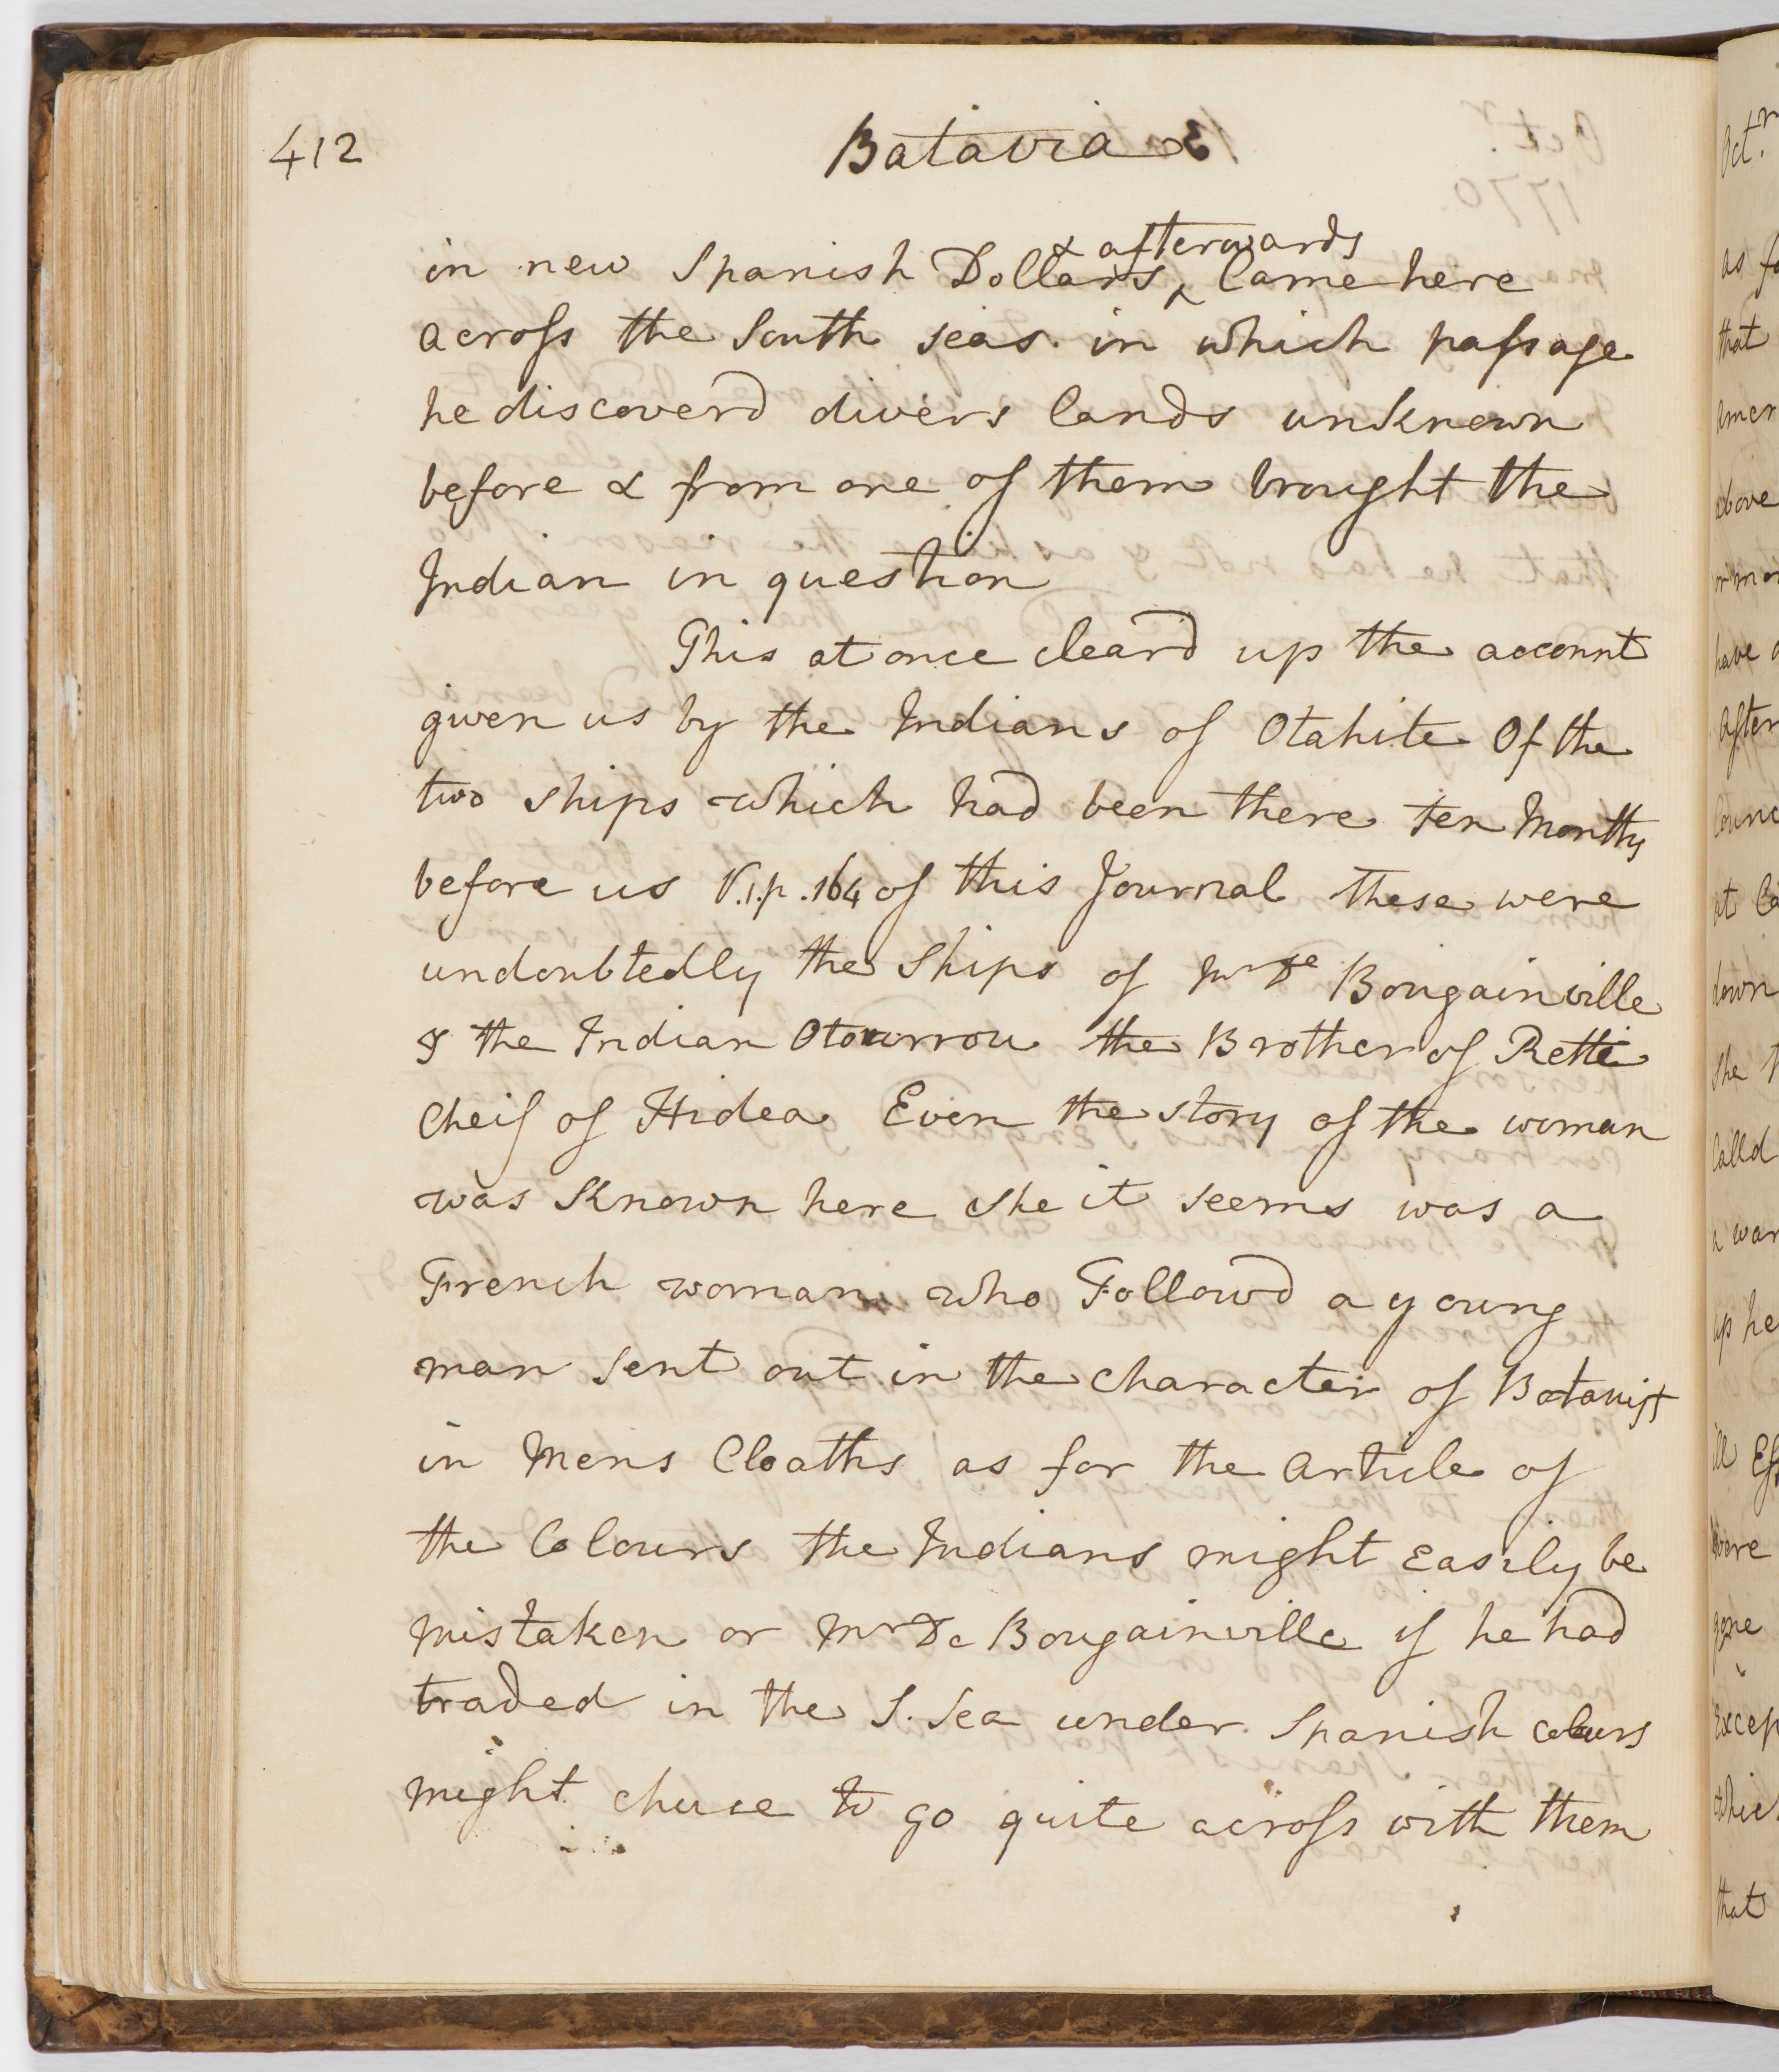 412
Batavia
& afterwards
in new Spanish Dollars ‸ Came here
across the South seas. in which passage
he discoverd divers lands unknown
before & from one of them brought the
Indian in question
This at once cleard up the account
given us by the Indians of Otahite Of the
two ships which had been there ten Months
before us V.1.p.164 of this Journal these were
undoubtedly the Ships of Mr De Bougainville
& the Indian Otourrou the Brother of Rette
Cheif of Hidea. Even the story of the woman
was known here she it seems was a
French woman who Followd a young
man sent out in the character of Botanist
in Mens Cloaths as for the article of
the Colours the Indians might easily be
mistaken or Mr De Bougainville if he had
traded in the S. Sea under Spanish colours
might chuse to go quite across with them
Octr
as
that
above
have
After
at
down
she
Calld
a war
up he
ill
were
gone
that